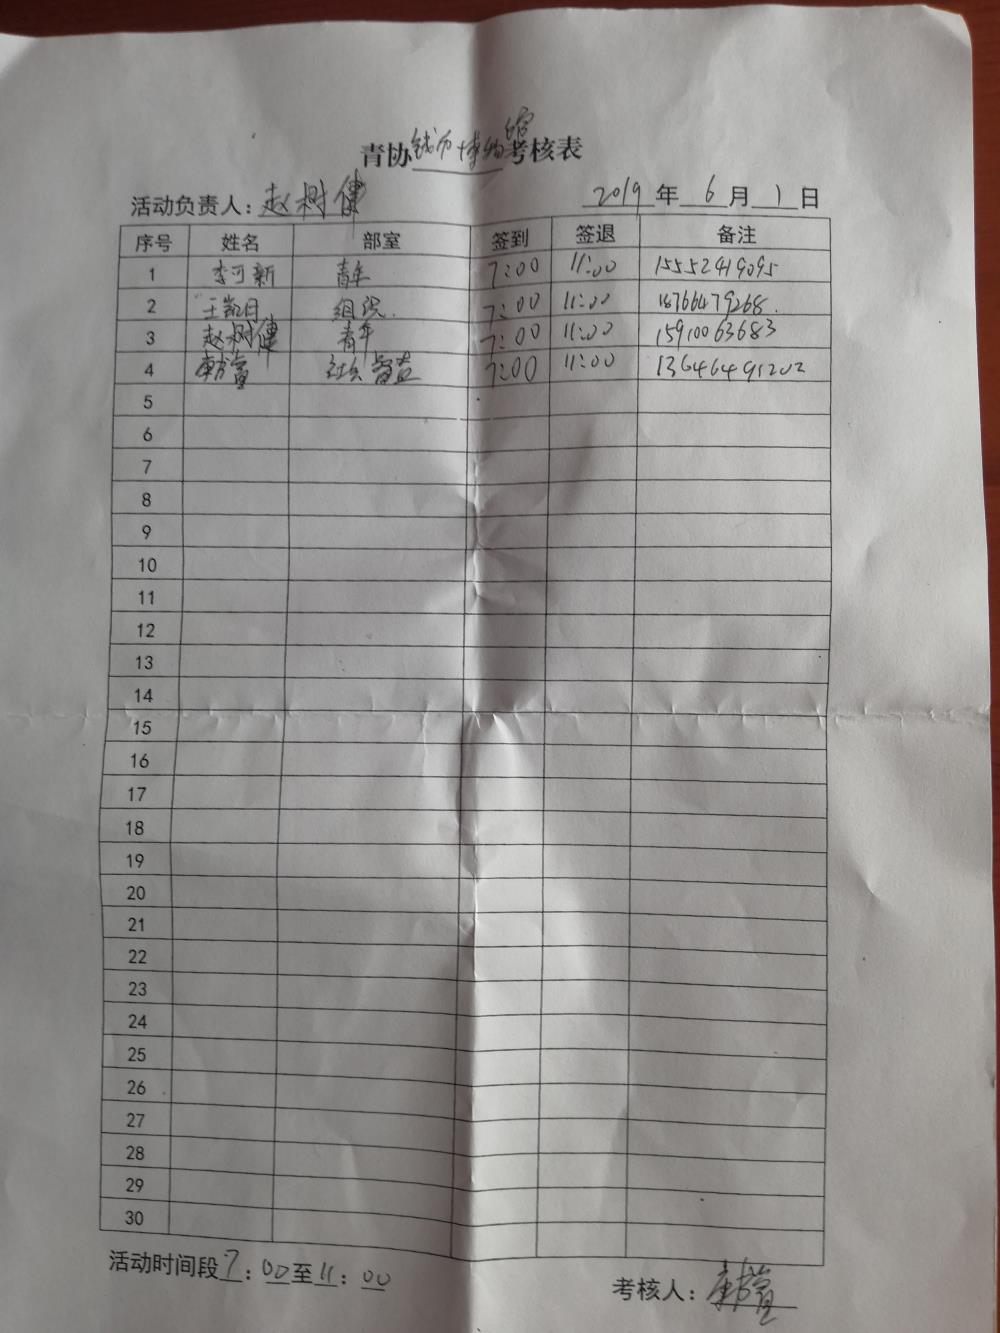 青协钱币博物馆考核表
活动负责人：赵树健 2019年6月1日
序号 姓名 部室 签到 签退 备注
1 李可新 青年 7:00 11:00 15552919095
2 王凯日 组织. 7:00 11:00 18766479268.
3 赵树健 青年 7:00 11:00 15910063683
4 社会 7:00 11:00 13646491202
5
6
7
8
9
10
11
12
13
14
15
16
17
18
19
20
21
22
23
24
25
26
27
28
29
30
活动时间段7:00至11:00
考核人：